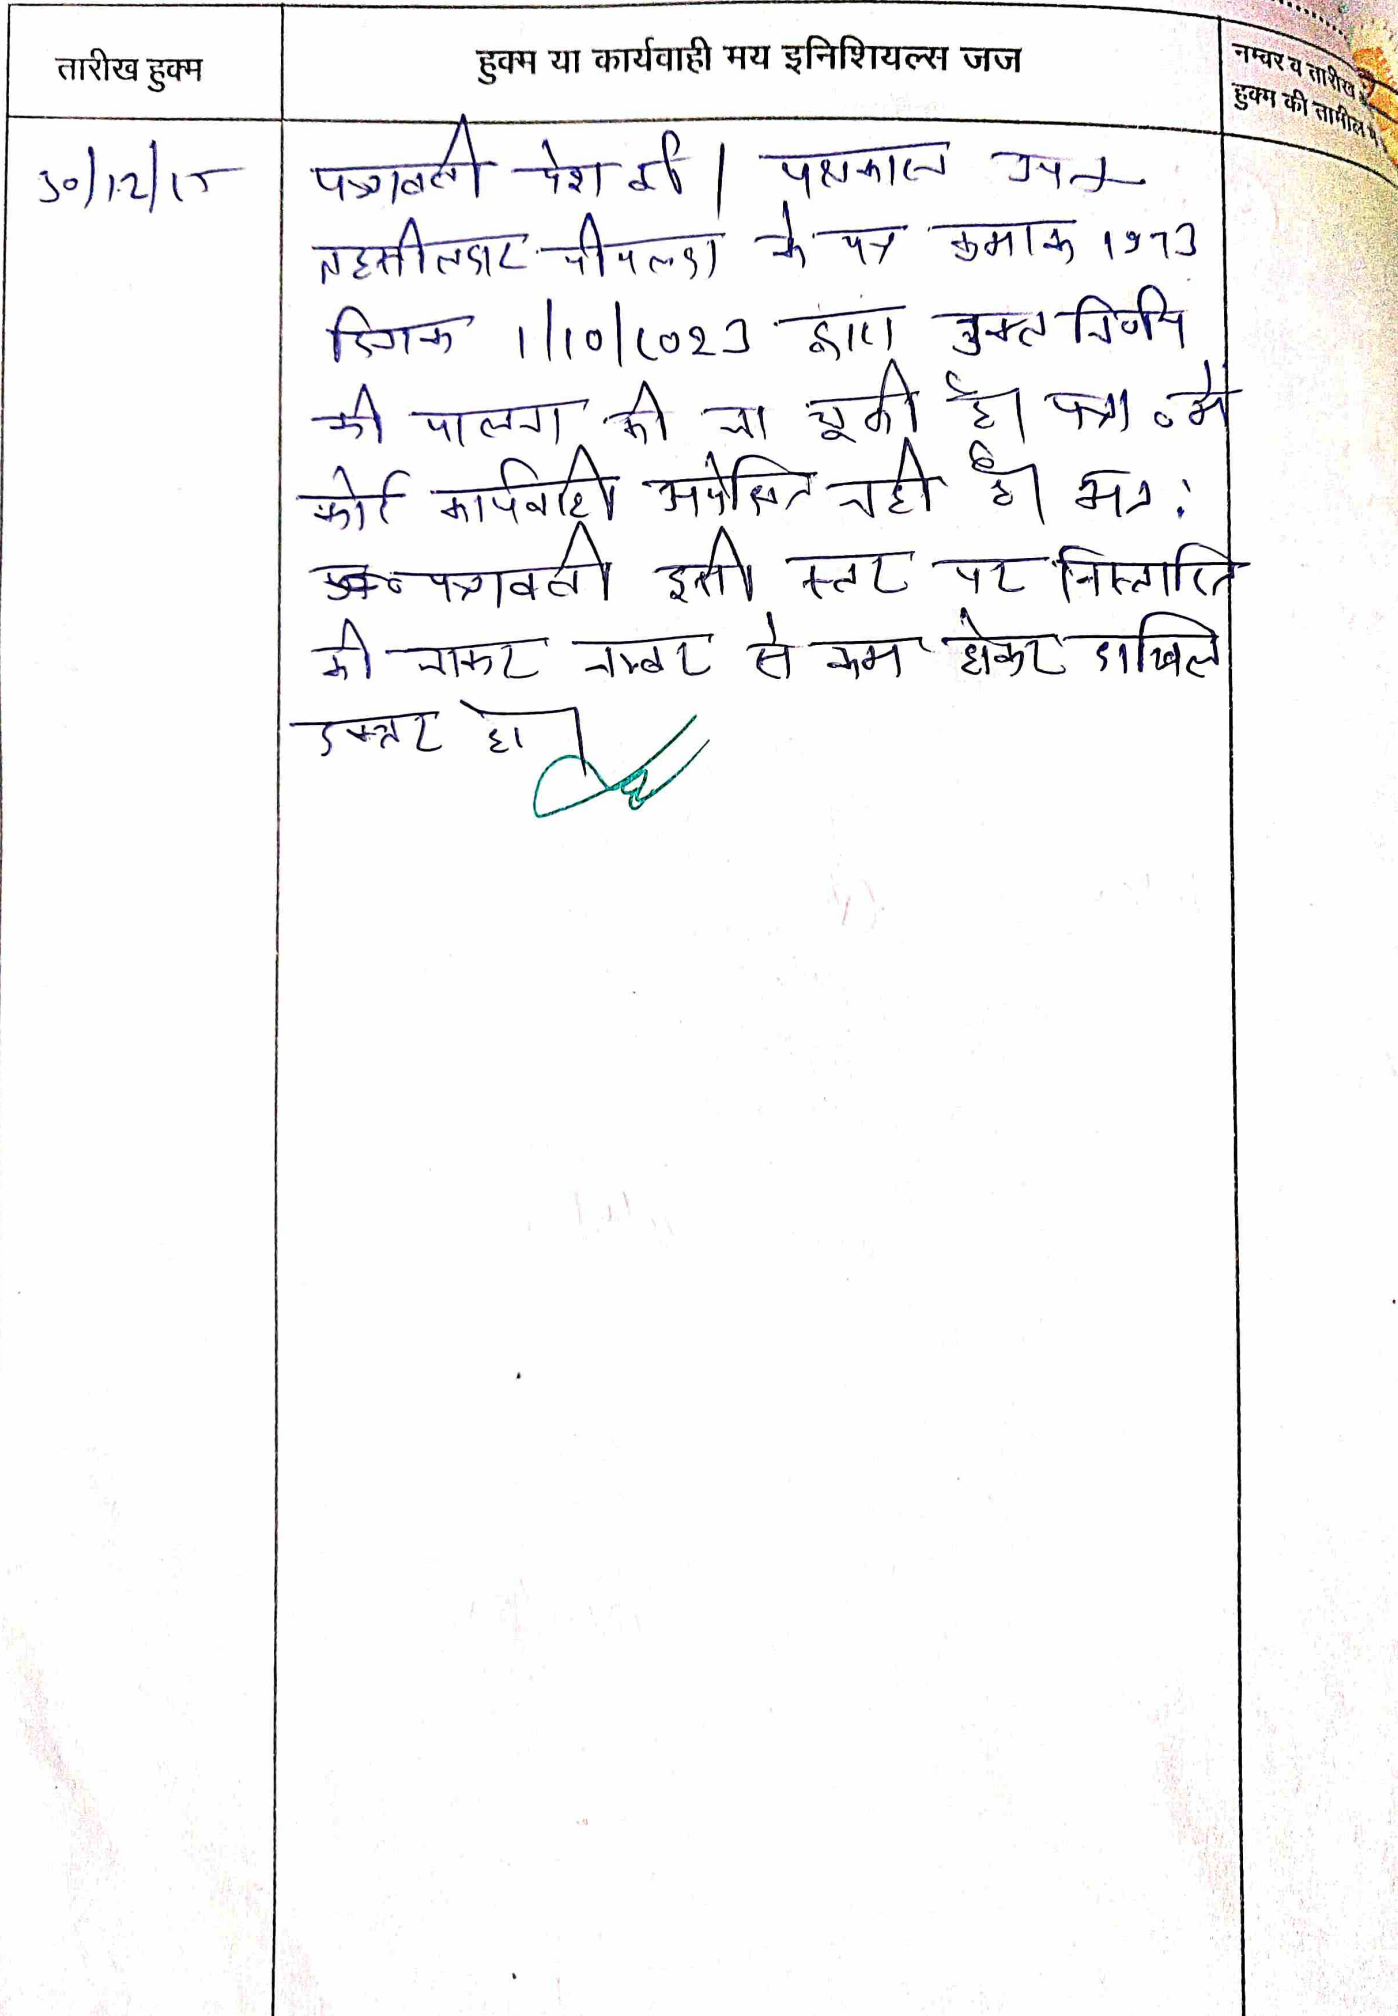 तारीख हुक्म
हुक्म या कार्यवाही मय इनिशियल्स जज
नम्बर व तारीख
हुक्म की तामील में
30/12/15
पत्रावली पेश हुई। पक्षकारान उप०
तहसीलदार पीपल्दा के पत्र क्रमांक 1973
दिनांक 1/10/2023 द्वारा निर्णय
की पालना की जा चुकी है। पत्रा० में
कोई कार्यवाही अपेक्षित नही है। अतः
पत्रावली इसी स्तर पर निस्तारित
की जाकर नम्बर से कम होकर दाखिल
दफ्तर हो।